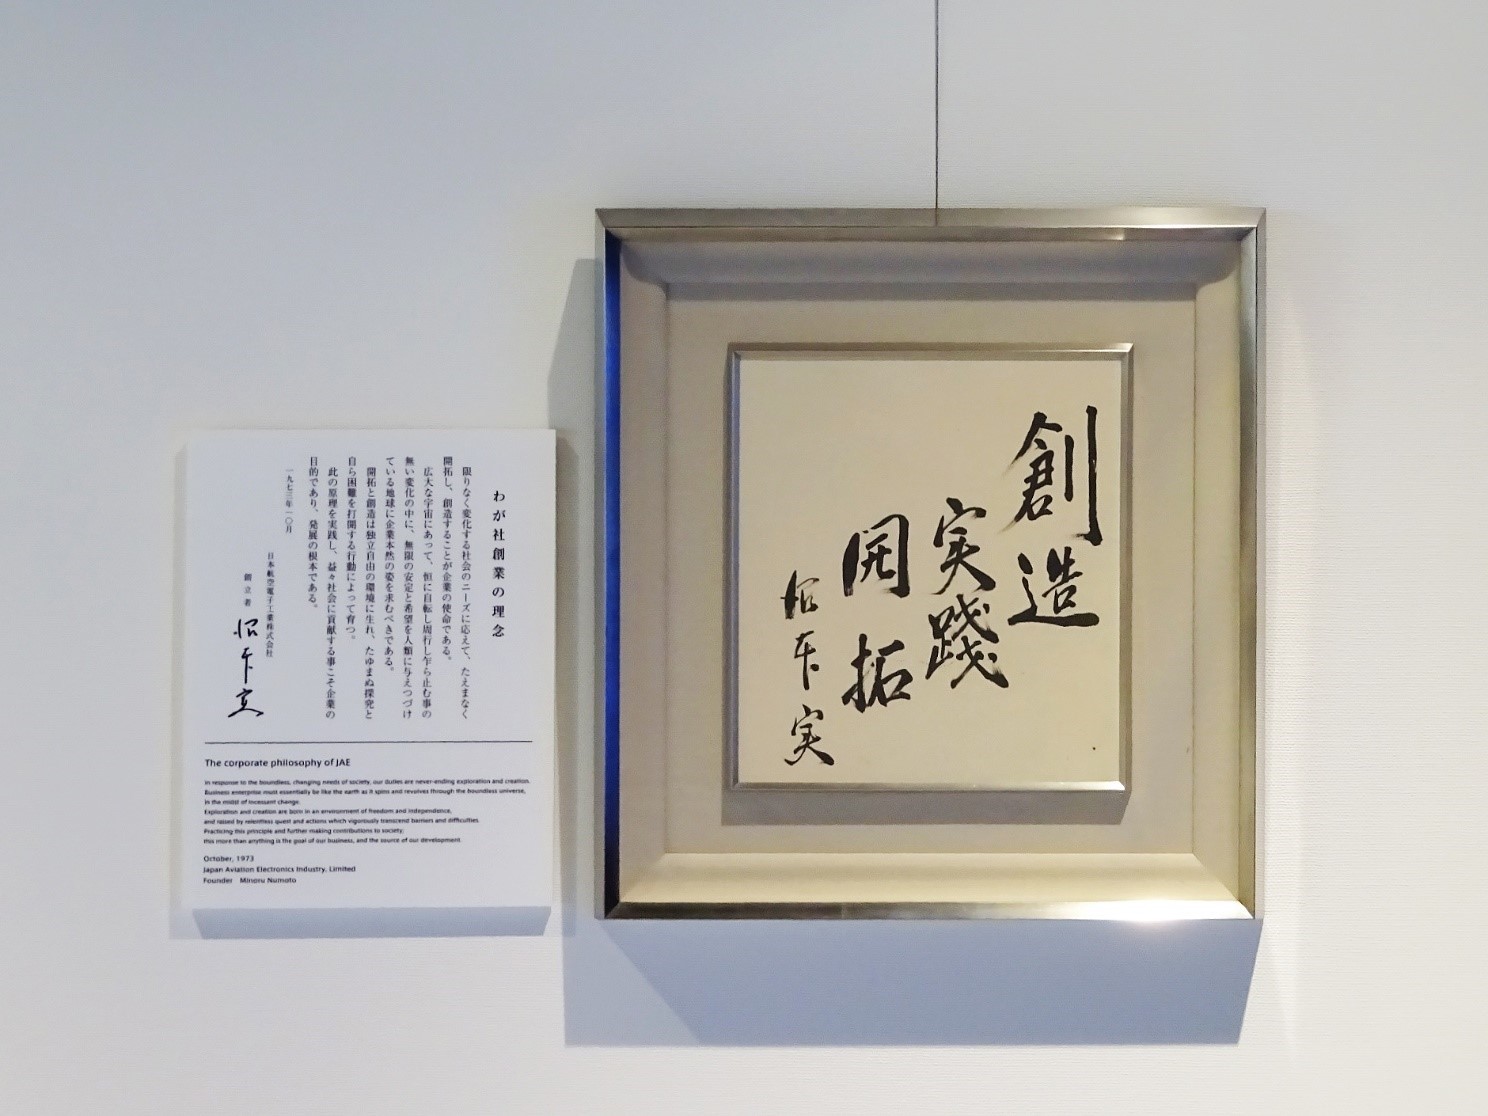 わが社創業の理念
限りなく変化する社会のニーズに応えて、たえまなく
開拓し、創造することが企業の使命である。
広大な宇宙にあって、恒に自転し周行し乍ら止む事の
無い変化の中に、無限の安定と希望を人類に与えつづけ
ている地球に企業本然の姿を求むべきである。
開拓と創造は独立自由の環境に生れ、たゆまぬ探究と
自ら困難を打開する行動によって育つ。
此の原理を実践し、益々社会に貢献する事こそ企業の
目的であり、発展の根本である。
一九七三年一〇月
日本航空電子工業株式会社
創立者
The corporate philosophy of JAE
In response to the boundless, changing needs of society, our duties are never-ending exploration and creation.
Business enterprise must essentially be like the earth as it spins and revolves through the boundless universe,
in the midst of incessant change.
Exploration and creation are born in an environment of freedom and independence,
and raised by relentless quest and actions which vigorously transcend barriers and difficulties.
Practicing this principle and further making contributions to society;
this more than anything is the goal of our business, and the source of our development.
October, 1973
Japan Aviation Electronics Industry, Limited
Founder Minoru Numoto
創造
実践
開拓